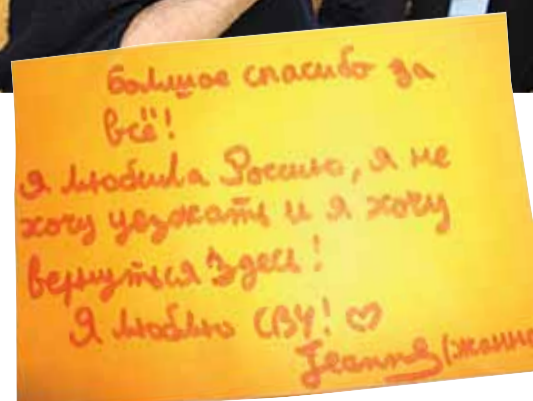 Большое спасибо за
всё!
Я любила Россию, я не
хочу уезжать и я хочу
вернуться здесь!
Я люблю СВУ! ♡
Jeanne (Жанна